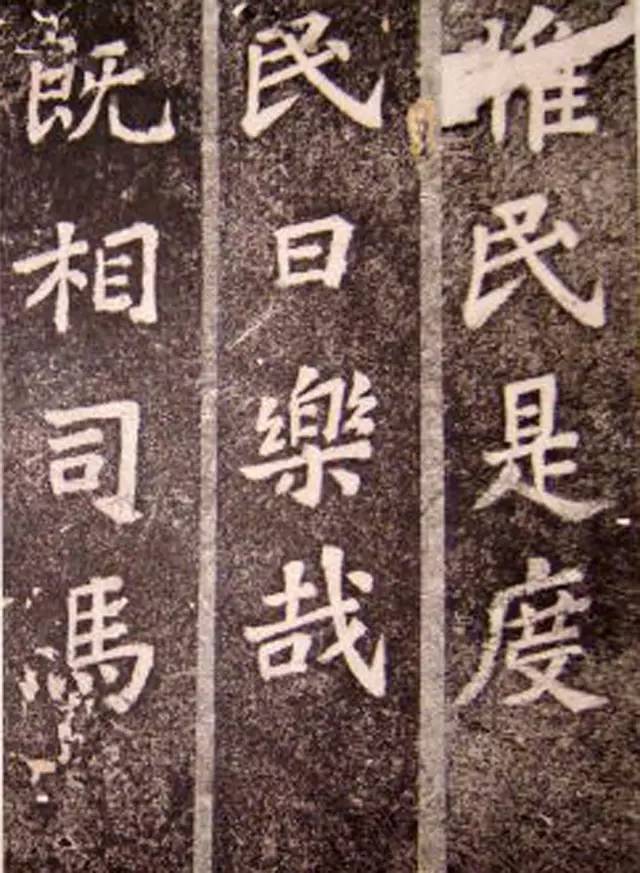 惟民是度
民日樂哉
既相司馬